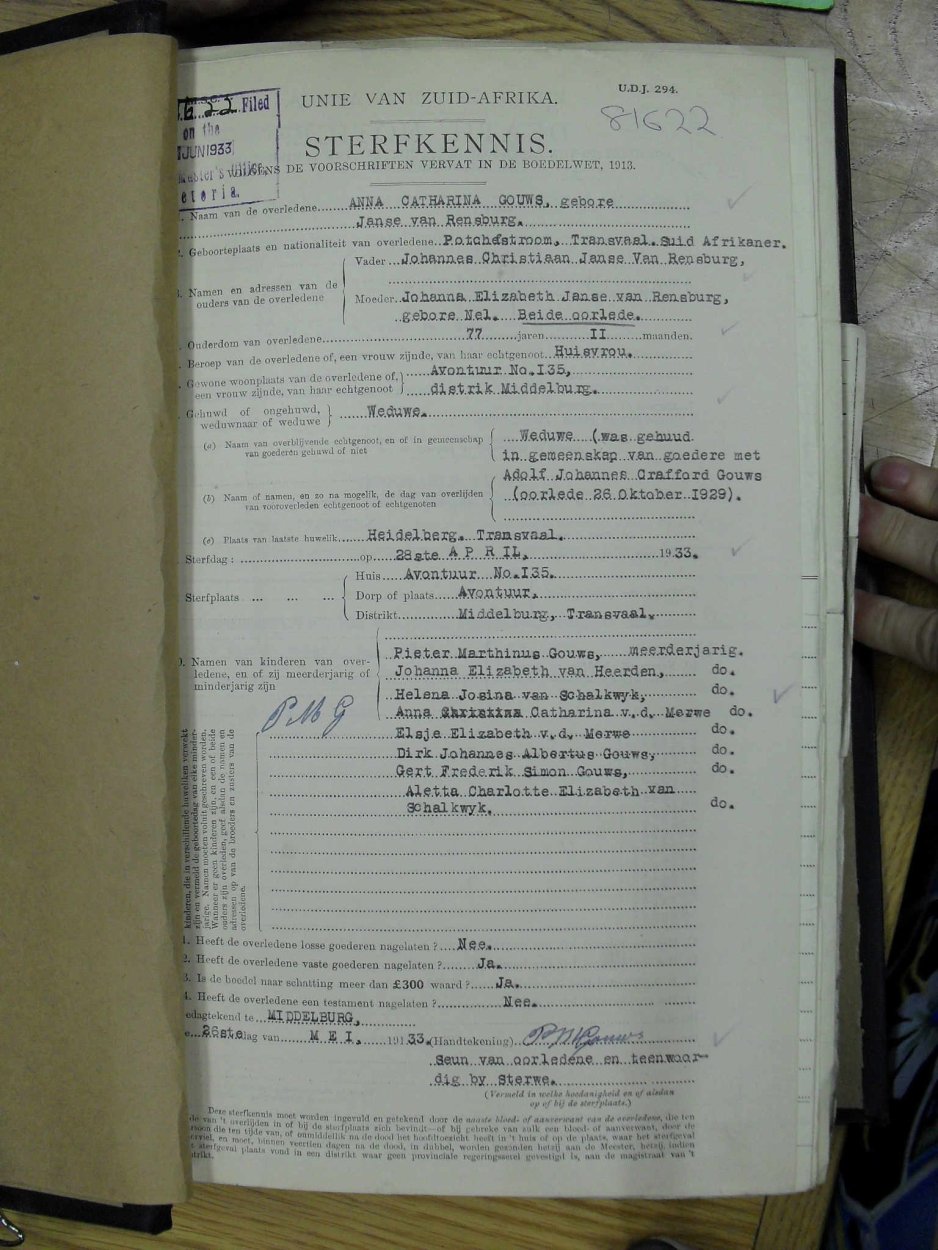 U.D.J. 294.
UNIE VAN ZUID-AFRIKA.
81622
22 Filed
on the
JUN 1933
Master's Office,
etoria.
STERFKENNIS.
VOLGENS DE VOORSCHRIFTEN VERVAT IN DE BOEDELWET, 1913.
Naam van de overledene ANNA CATHARINA GOUWS, gebore
Janse van Rensburg.
Geboorteplaats en nationaliteit van overledene Potchefstroom, Transvaal. Suid Afrikaner.
Namen en adressen van de ouders van de overledene
Vader Johannes Christiaan Janse Van Rensburg,
Moeder Johanna Elizabeth Janse van Rensburg,
gebore Nel. Beide oorlede.
Ouderdom van overledene 77 jaren II maanden.
Beroep van de overledene of, een vrouw zijnde, van haar echtgenoot Huisvrou.
Gewone woonplaats van de overledene of, een vrouw zijnde, van haar echtgenoot
Avontuur No.I35,
distrik Middelburg.
Gehuwd of ongehuwd, weduwnaar of weduwe Weduwe.
(a) Naam van overblijvende echtgenoot, en of in gemeenschap van goederen gehuwd of niet
Weduwe (was gehuud
in gemeenskap van goedere met
Adolf Johannes Crafford Gouws
(b) Naam of namen, en zo na mogelik, de dag van overlijden van vooroverleden echtgenoot of echtgenoten
(oorlede 26 Oktober 1929).
(c) Plaats van laatste huwelik Heidelberg. Transvaal.
Sterfdag : op 28ste A P R I L, 1933.
Sterfplaats ... ... ...
Huis Avontuur No.I35.
Dorp of plaats Avontuur,
Distrikt Middelburg, Transvaal,
Namen van kinderen van overledene, en of zij meerderjarig of minderjarig zijn
Pieter Marthinus Gouws, meerderjarig.
Johanna Elizabeth van Heerden, do.
Helena Josina van Schalkwyk, do.
Anna Christina Catharina v.d. Merwe do.
P M G
Elsje Elizabeth v.d. Merwe do.
Dirk Johannes Albertus Gouws, do.
Gert Frederik Simon Gouws, do.
Aletta Charlotte Elizabeth van
Schalkwyk. do.
kinderen, die in verschillende huweliken verwekt
zijn en vermeld de geboortedag van elke minder-
jarige. Namen moeten voluit geschreven worden.
Wanneer er geen kinderen zijn, en een of beide
ouders zijn overleden, geef alsdan de namen en
adressen op van de broeders en zusters van de
overledene.
1. Heeft de overledene losse goederen nagelaten ? Nee.
2. Heeft de overledene vaste goederen nagelaten ? Ja.
3. Is de boedel naar schatting meer dan £300 waard ? Ja.
4. Heeft de overledene een testament nagelaten ? Nee.
edagtekend te MIDDELBURG,
e 26ste dag van M E I, 19133. (Handtekening) P M Gouws
Seun van oorledene en teenwaar-
dig by sterwe.
(Vermeld in welke hoedanigheid en of alsdan
op of bij de sterfplaats.)
Deze sterfkennis moet worden ingevuld en getekend door de naaste bloed- of aanverwant van de overledene, die ten
de van 't overlijden in of bij de sterfplaats zich bevindt—of bij gebreke van zulk een bloed- of aanverwant, door de
rsoon die ten tijde van, of onmiddellik na de dood het hoofdtoezicht heeft in 't huis of op de plaats, waar het sterfgeval
orviel, en moet, binnen veertien dagen na de dood, in dubbel, worden gezonden hetzij aan de Meester, hetzij, indien
t sterfgeval plaats vond in een distrikt waar geen provinciale regeringszetel gevestigd is, aan de magistraat van 't
trikt.